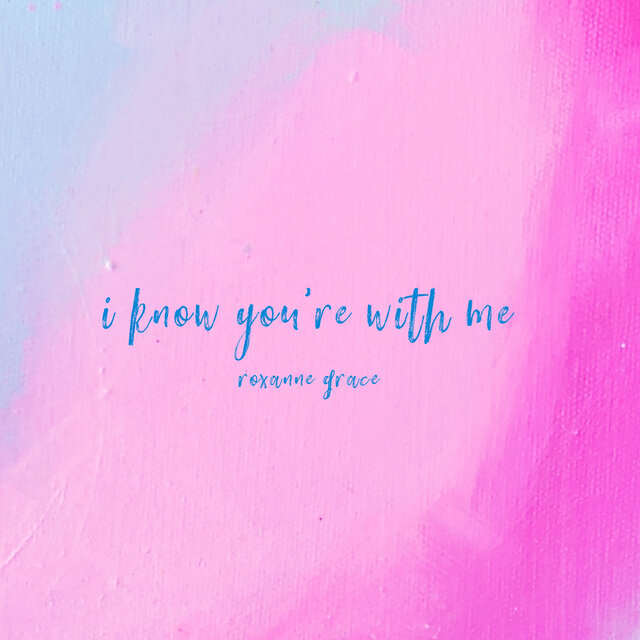 i know you're with me
roxanne grace